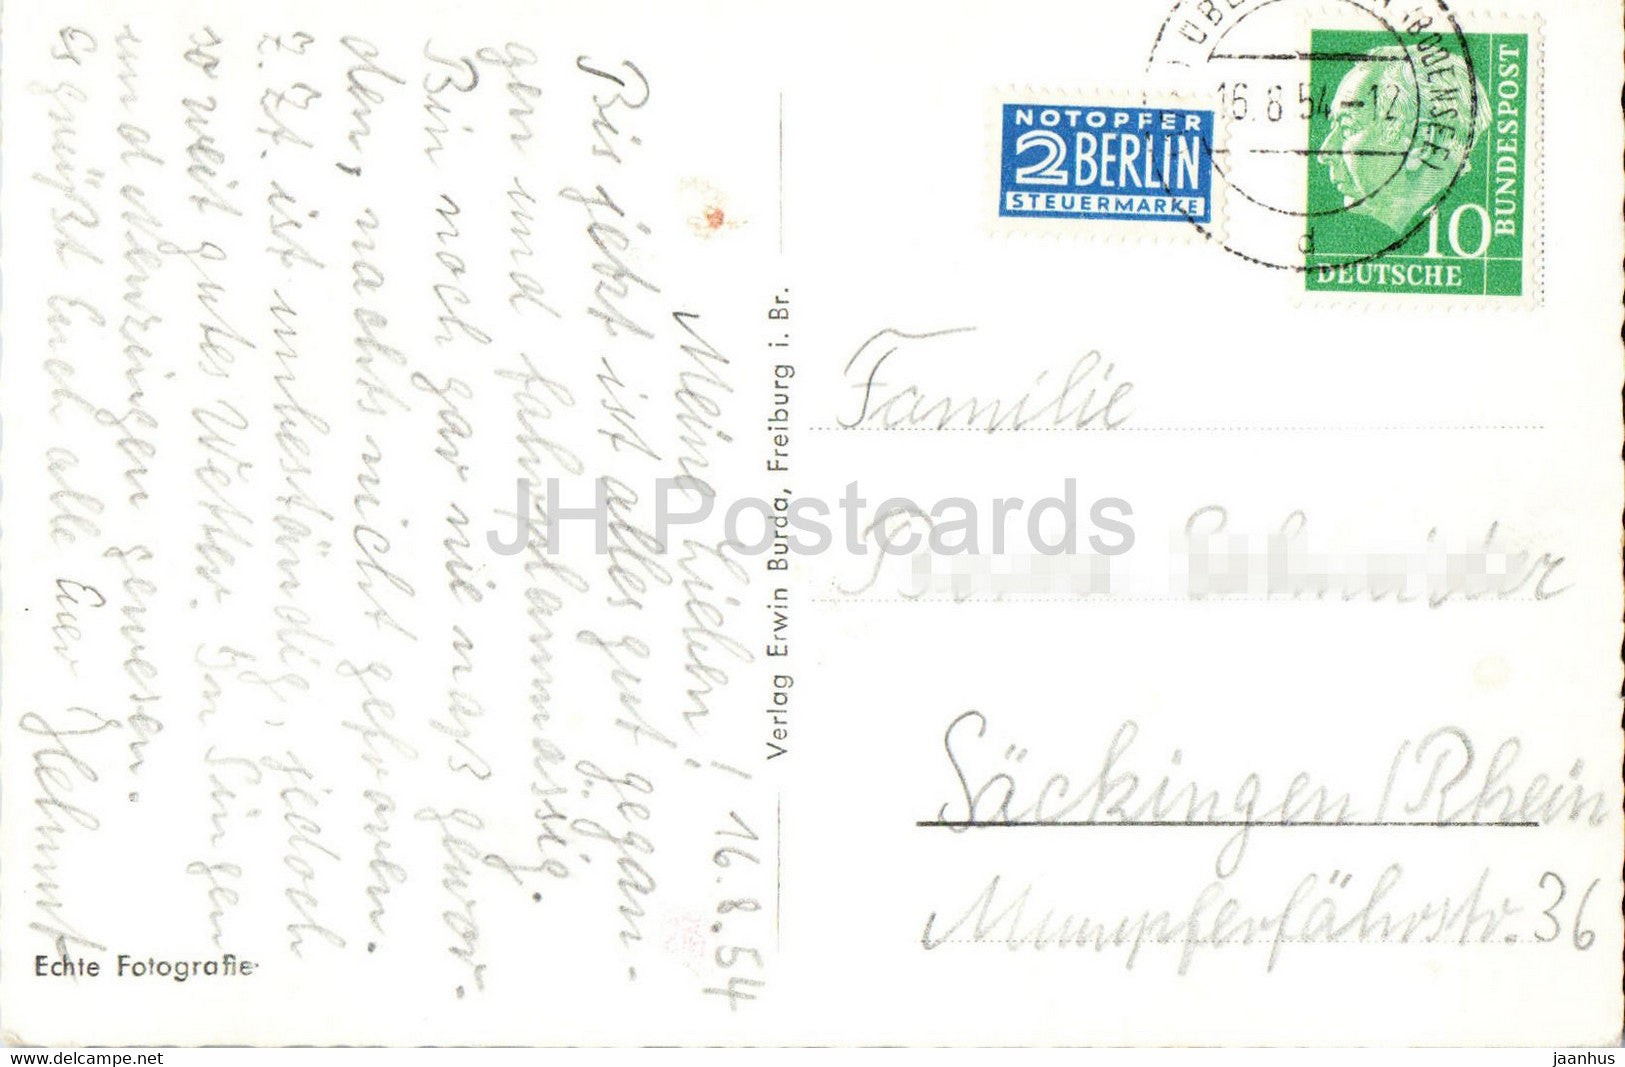 Meine Lieben! 16.8.54
Bis jetzt ist alles gut gegan-
gen und fahrplanmässig.
Bin noch gar nie naß gewor-
den, nachts nicht gefroren.
Z. Zt. ist unbeständig, jedoch
so weit gutes Wetter. In Singen
und Utwzingen gewesen.
Es grüßt Euch alle Euer Helmut
Echte Fotografie
Verlag Erwin Burda, Freiburg i. Br.
NOTOPFER
2 BERLIN
STEUERMARKE
(BODENSEE)
16.8.54-12
d
10
DEUTSCHE
BUNDESPOST
Familie
Säckingen/Rhein
Mumpferfährstr. 36
JH Postcards
www.delcampe.net
jaanhus